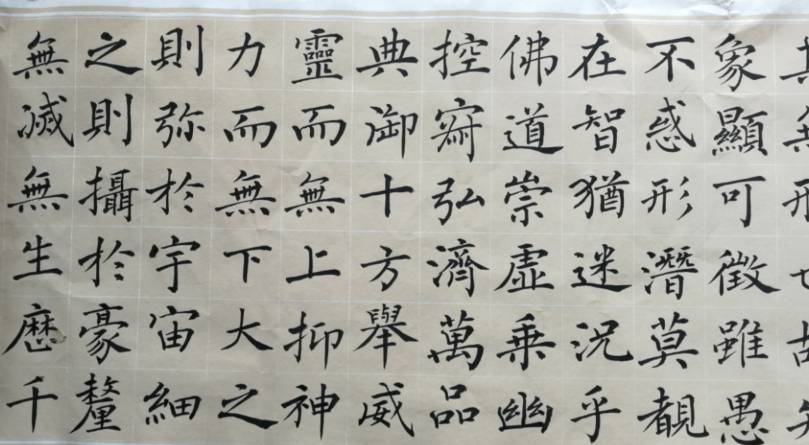 象顯可徵雖愚
不惑形潛莫覩
在智猶迷況乎
佛道崇虛乘幽
控寂弘濟萬品
典御十方舉威
靈而無上抑神
力而無下大之
則弥於宇宙細
之則攝於豪釐
無滅無生歷千